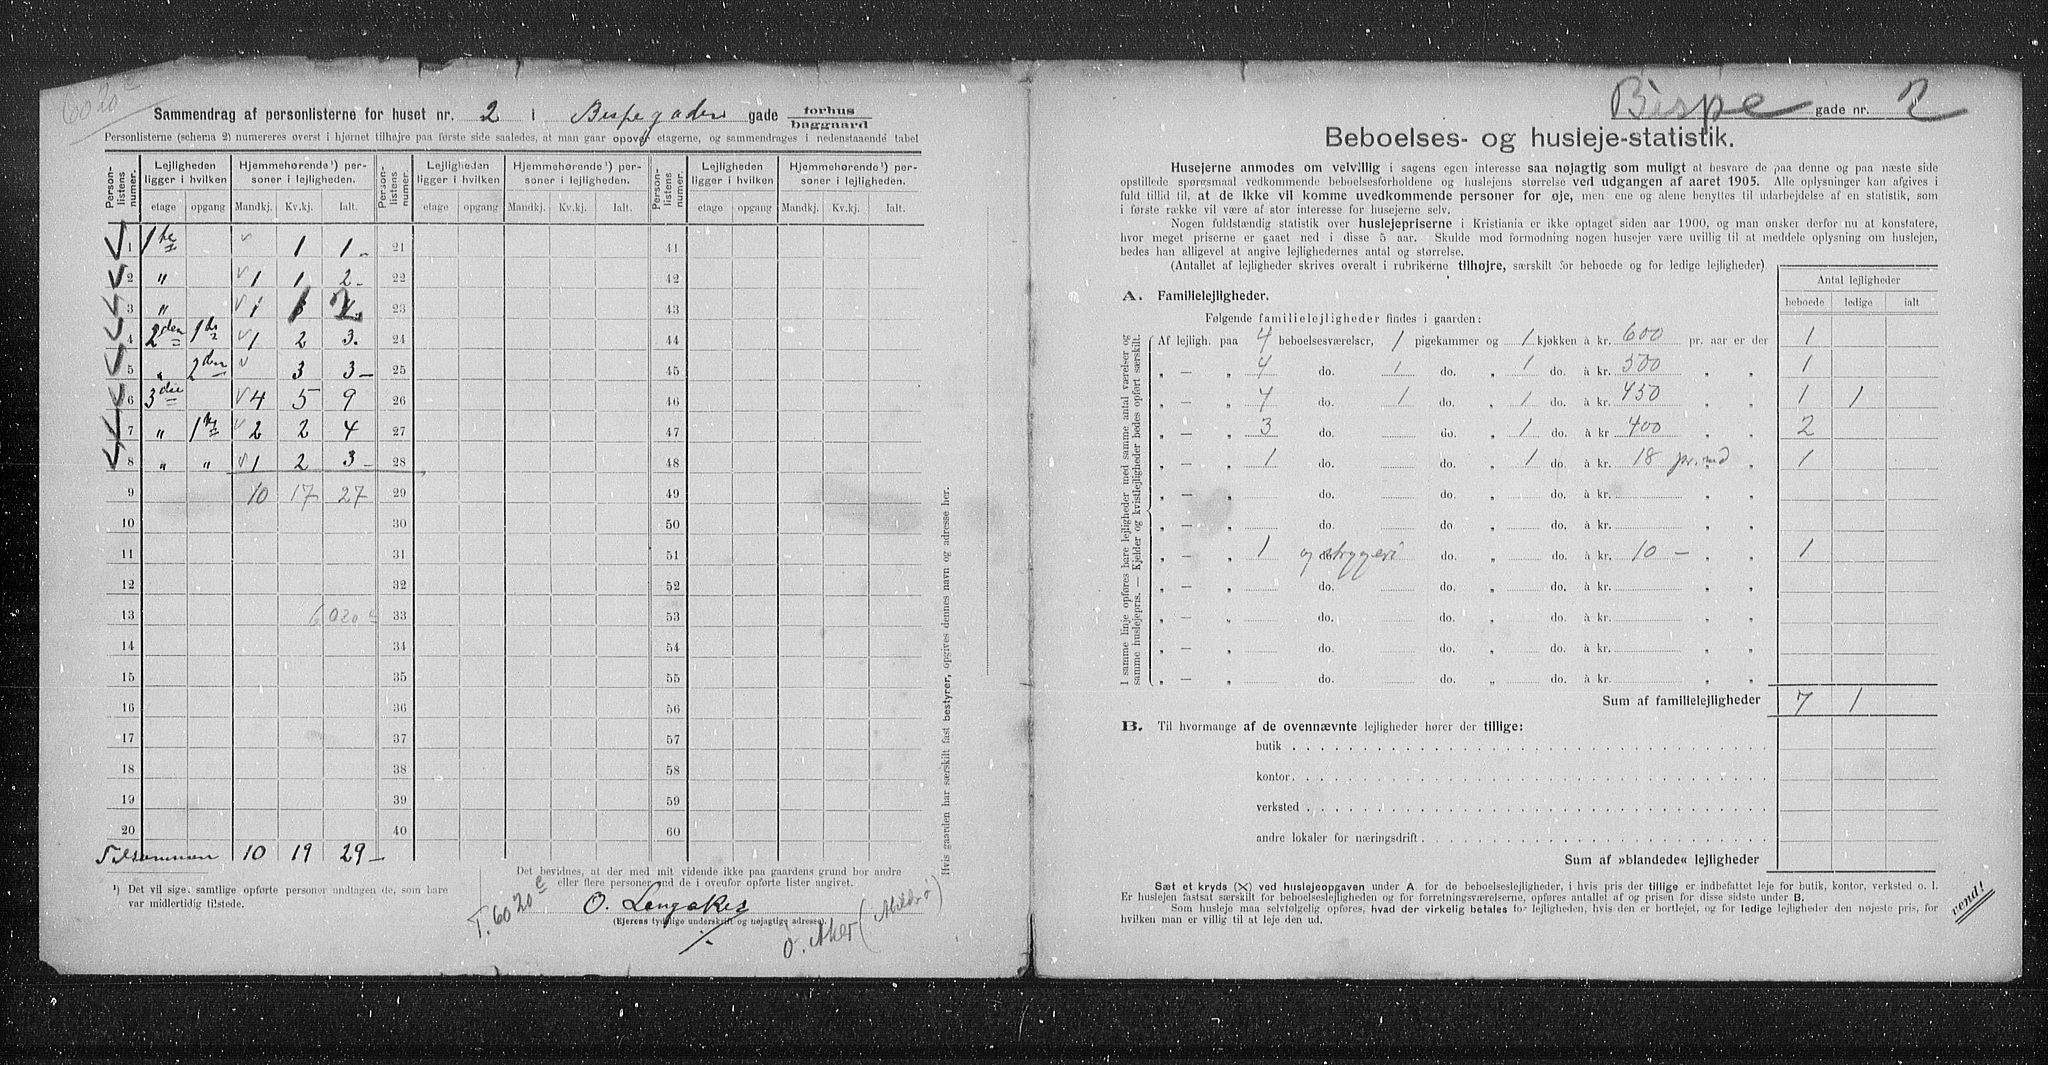 6020c
Sammendrag af personlisterne for huset nr. 2 i Bispegaden gade forhus baggaard
Personlisterne (schema 2) numereres øverst i hjørnet tilhøjre paa første side saaledes, at man gaar opover etagerne, og sammendrages i nedenstaaende tabel
Person-listens numer. Lejligheden ligger i hvilken Hjemmehørende¹) personer i lejligheden. Person-listens numer. Lejligheden ligger i hvilken Hjemmehørende¹) personer i lejligheden. Person-listens numer. Lejligheden ligger i hvilken Hjemmehørende¹) personer i lejligheden.
etage opgang Mandkj. Kv.kj. Ialt. etage opgang Mandkj. Kv.kj. Ialt. etage opgang Mandkj. Kv.kj. Ialt.
1 1ste 1 1 21 41
2 " 1 1 2 22 42
3 " 1 1 2 23 43
4 2den 1ste 1 2 3 24 44
5 " 2den 3 3 25 45
6 3die 4 5 9 26 46
7 " 1ste 2 2 4 27 47
8 " " 1 2 3 28 48
9 10 17 27 29 49
10 30 50
11 31 51
12 32 52
13 6020c 33 53
14 34 54
15 35 55
16 36 56
17 37 57
18 38 58
19 39 59
20 40 60
Tilsammen 10 19 29
¹) Det vil sige: samtlige opførte personer undtagen de, som bare var midlertidig tilstede.
Det bevidnes, at der med mit vidende ikke paa gaardens grund bor andre eller flere personer end de i ovenfor opførte lister angivet.
T. 6020c
O. Langaker
(Ejerens tydelige underskrift og nøjagtig adresse).
Ø. Aker (Abildsø)
Hvis gaarden har særskilt fast bestyrer, opgives dennes navn og adresse her.
Bispe gade nr. 2
Beboelses- og husleje-statistik.
Husejerne anmodes om velvillig i sagens egen interesse saa nøjagtig som muligt at besvare de paa denne og paa næste side
opstillede spørgsmaal vedkommende beboelsesforholdene og huslejens størrelse ved udgangen af aaret 1905. Alle oplysninger kan afgives i
fuld tillid til, at de ikke vil komme uvedkommende personer for øje, men ene og alene benyttes til udarbejdelse af en statistik, som
i første række vil være af stor interesse for husejerne selv.
Nogen fuldstændig statistik over huslejepriserne i Kristiania er ikke optaget siden aar 1900, og man ønsker derfor nu at konstatere,
hvor meget priserne er gaaet ned i disse 5 aar. Skulde mod formodning nogen husejer være uvillig til at meddele oplysning om huslejen,
bedes han alligevel at angive lejlighedernes antal og størrelse.
(Antallet af lejligheder skrives overalt i rubrikerne tilhøjre, særskilt for beboede og for ledige lejligheder)
Antal lejligheder
beboede ledige ialt
A. Familielejligheder.
Følgende familielejligheder findes i gaarden:
I samme linje opføres bare lejligheder med samme antal værelser og samme huslejepris. — Kjelder og kvistlejligheder bedes opført særskilt.
Af lejligh. paa 4 beboelsesværelser, 1 pigekammer og 1 kjøkken à kr. 600 pr. aar er der 1
" — " 4 do. 1 do. " 1 do. à kr. 500 " " 1
" — " 4 do. 1 do. " 1 do. à kr. 450 " " 1 1
" — " 3 do. do. " 1 do. à kr 400 " " 2
" — " 1 do. do. " 1 do. à kr. 18 pr. md " 1
" — " do. do. " do. à kr. " "
" — " do. do. " do. à kr. " "
" — " 1 og strygeri do. do. " do. à kr. 10 — " " 1
" — " do. do. " do. à kr. " "
" — " do. do. " do. à kr. " "
" — " do. do. " do. à kr. " "
" — " do. do. " do. à kr. " "
Sum af familielejligheder 7 1
B. Til hvormange af de ovennævnte lejligheder hører der tillige:
butik
kontor
verksted
andre lokaler for næringsdrift
Sum af »blandede« lejligheder
Sæt et kryds (X) ved huslejeopgaven under A. for de beboelseslejligheder, i hvis pris der tillige er indbefattet leje for butik, kontor, verksted o. l.
Er huslejen fastsat særskilt for beboelseslejligheden og for forretningsværelserne, opføres antallet af og prisen for disse sidste under B.
Som husleje maa selvfølgelig opføres, hvad der virkelig betales for lejligheden, hvis den er bortlejet, og for ledige lejligheder den nøjeste pris, for
hvilken man er villig til at leje den ud.
vend!